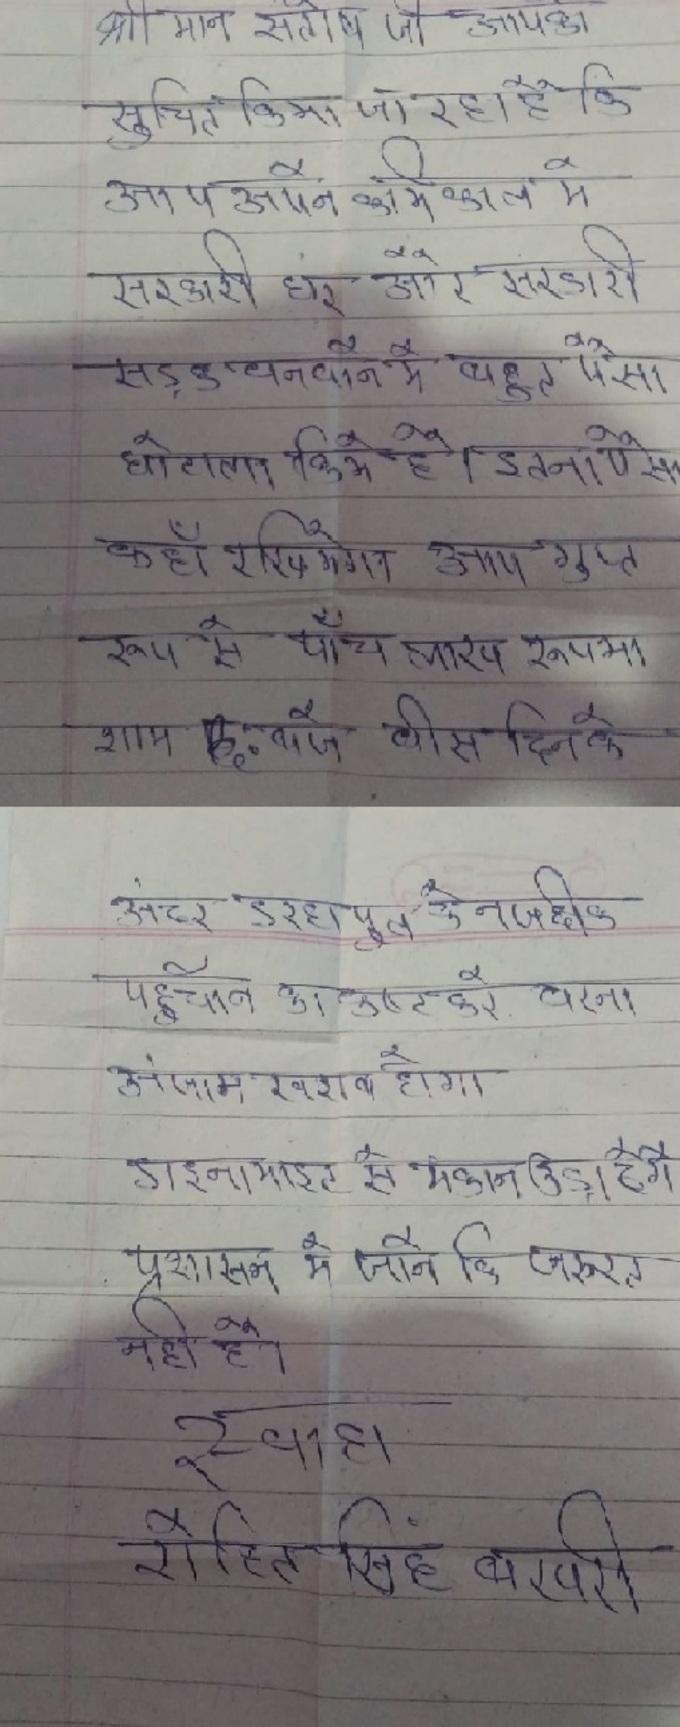 श्री मान संतोष जी आपको
सुचित किया जा रहा है कि
आप अपने कार्य काल में
सरकारी घर और सरकारी
सड़क बनवाने में बहुत पैसा
घोटाला किये है। इतना पैसा
कहाँ रखियेगा आप गुप्त
रूप से पाँच लाख रूपया
शाम छः बजे बीस दिन के
अंदर डरहा पुल के नजदीक
पहुँचाने का कष्ट करे वरना
अंजाम खराब होगा
डाइनामाइट से मकान उड़ा देंगे
प्रसासन में जाने कि जरूरत
नही है।
स्वाहा
रोहित सिंह बखरी